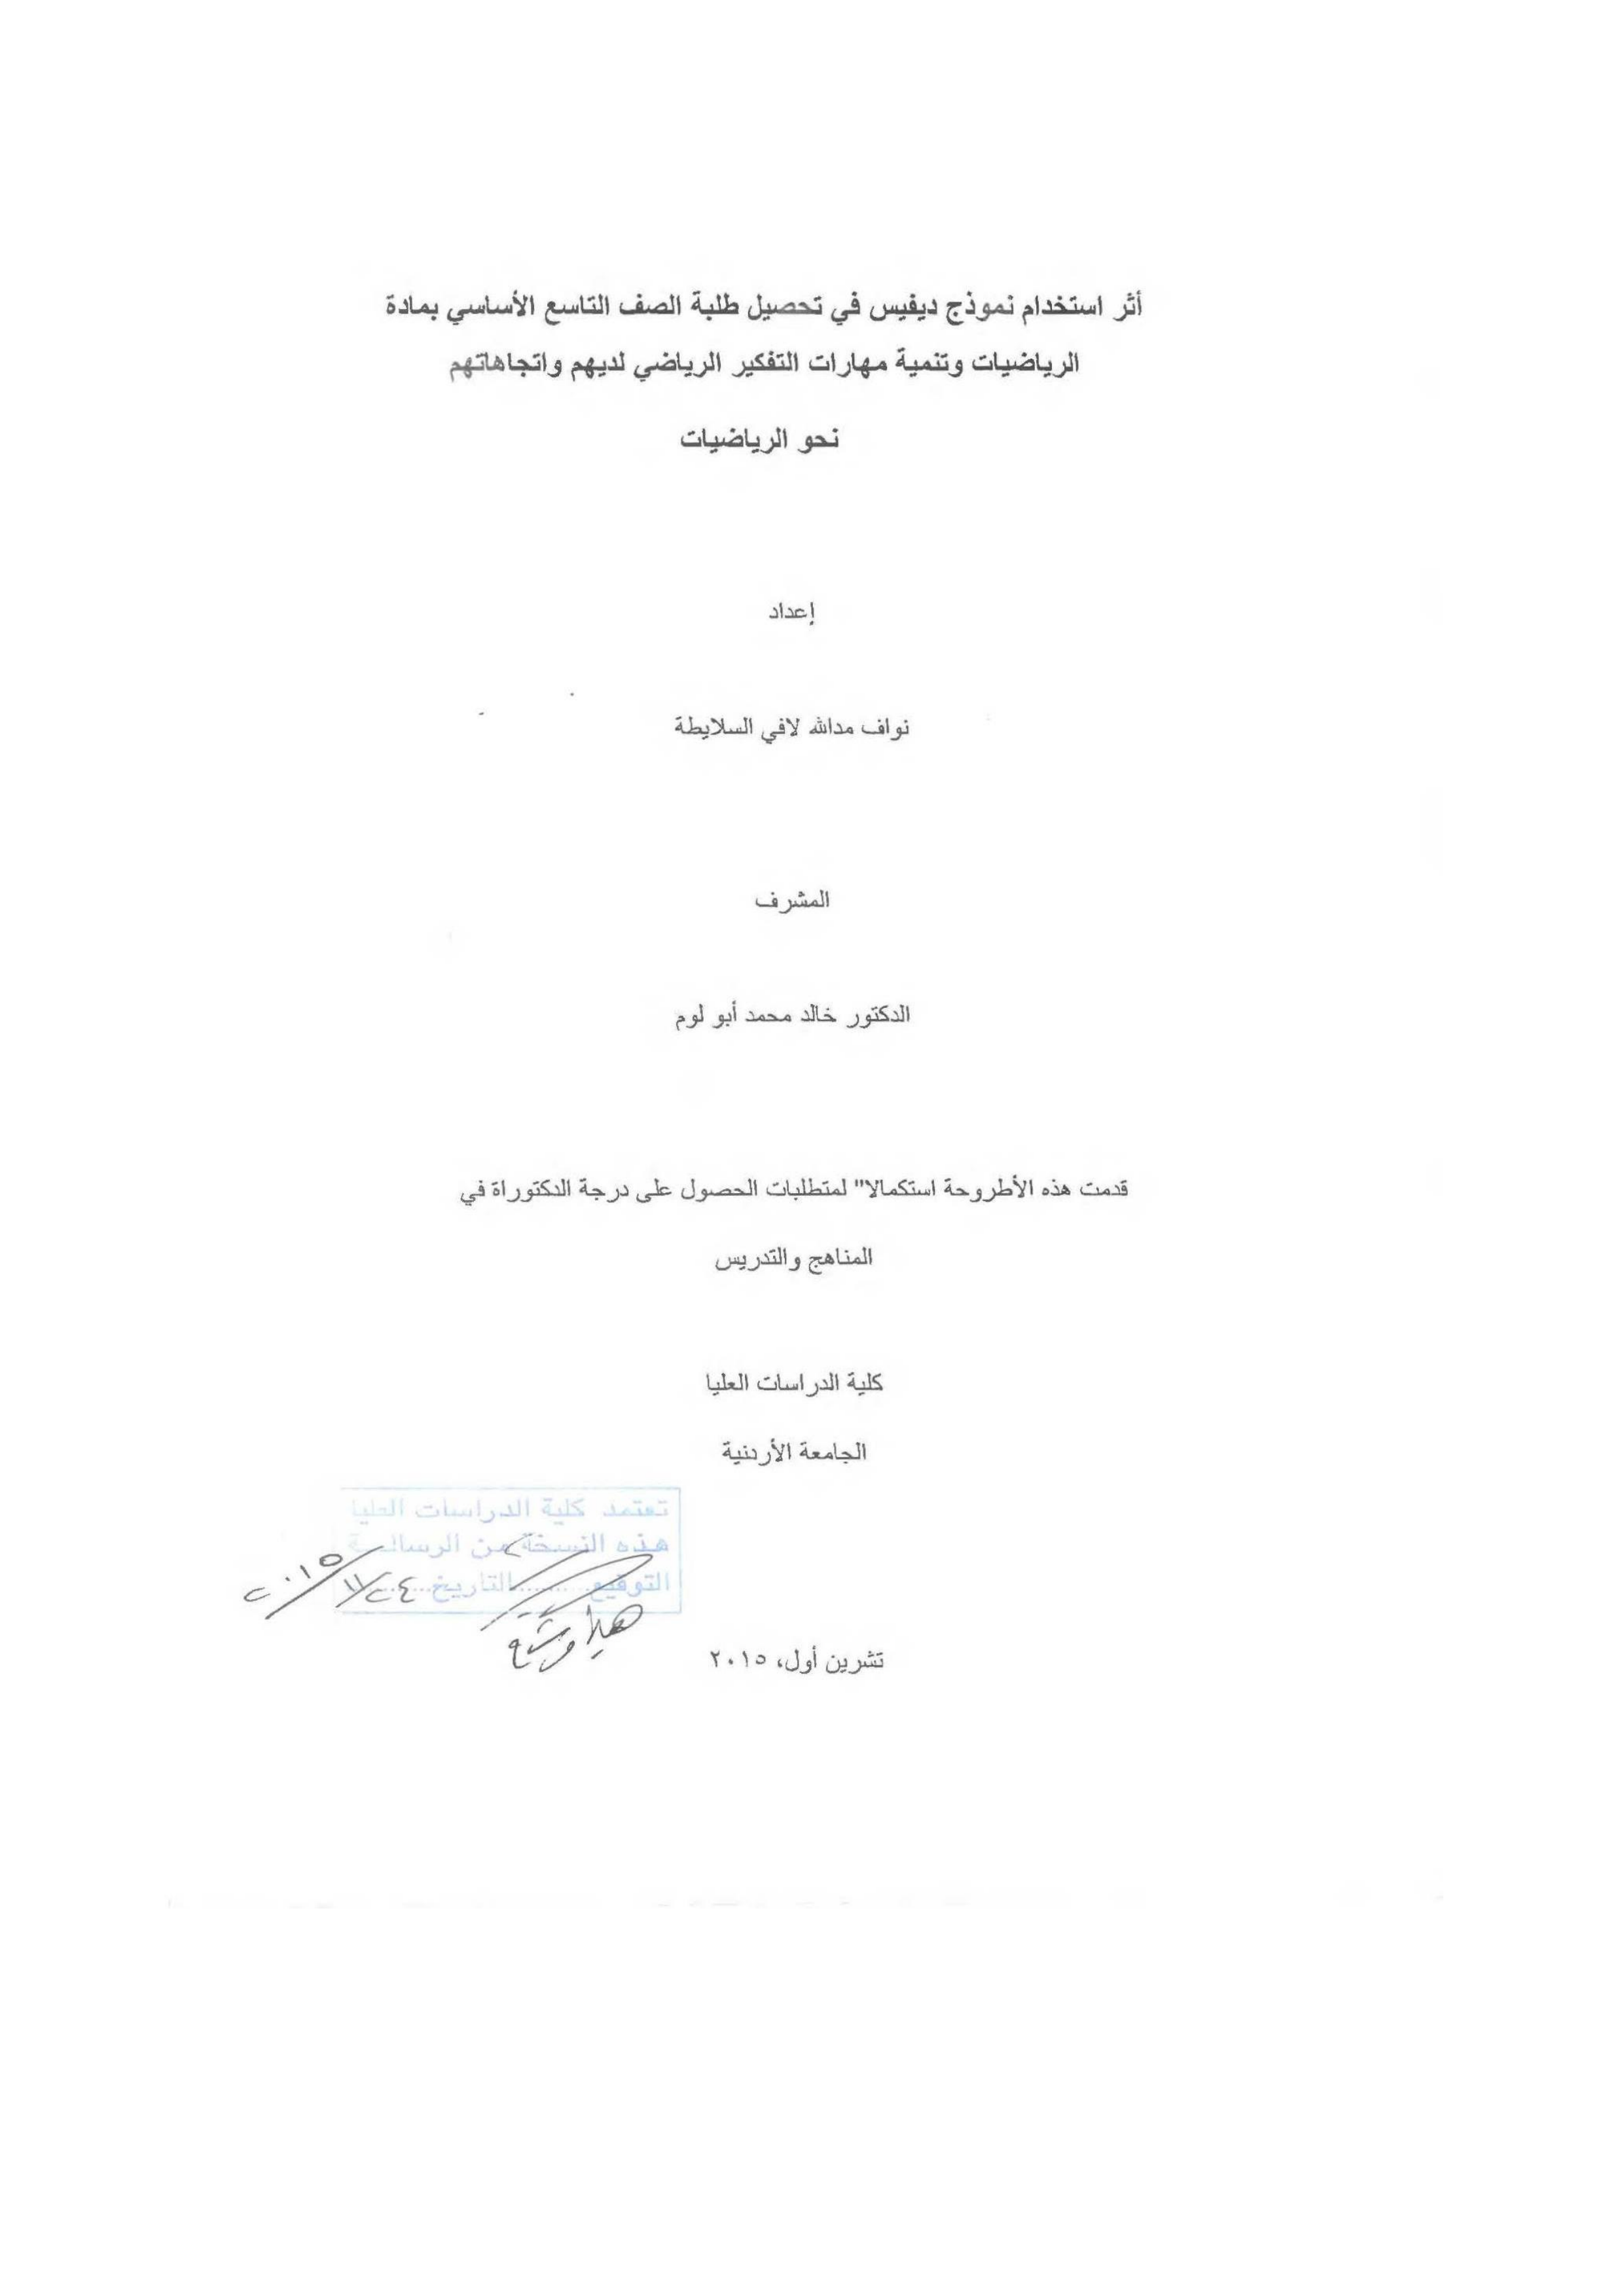 أثر استخدام نموذج ديفيس في تحصيل طلبة الصف التاسع الأساسي بمادة
الرياضيات وتنمية مهارات التفكير الرياضي لديهم واتجاهاتهم
نحو الرياضيات
إعداد
نواف مدالله لافي السلايطة
المشرف
الدكتور خالد محمد أبو لوم
قدمت هذه الأطروحة استكمالا" لمتطلبات الحصول على درجة الدكتوراة في
المناهج والتدريس
كلية الدراسات العليا
الجامعة الأردنية
تعتمد كلية الدراسات العليا
هذه النسخة من الرسالة
التوقيع........التاريخ ٢٤/١١/٢٠١٥
تشرين أول، ٢٠١٥